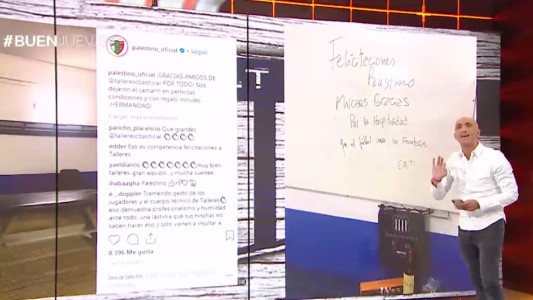 #BUENJUEVES
palestino_oficial • Seguir
palestino_oficial ¡GRACIAS AMIGOS DE
@tallerescbaoficial POR TODO! Nos
dejaron el camarín en perfectas
condiciones y con regalo incluido.
¡HERMANDAD!
Cargar más comentarios
Que grandes
@tallerescbaoficial
edder Eso es competencia felicitaciones a
Talleres
muy bien
talleres, gran equipo.. y mucha suerte
Palestino
Tremendo gesto de los
jugadores y el cuerpo técnico de Talleres
eso demuestra profesionalismo y humanidad
ante todo, una lástima que tus hinchas no
saben hacer eso y solo vienen a insultar a
8.196 Me gusta
Felicitaciones
Palestino
Muchas Gracias
Por la Hospitalidad
que el fútbol
CAT